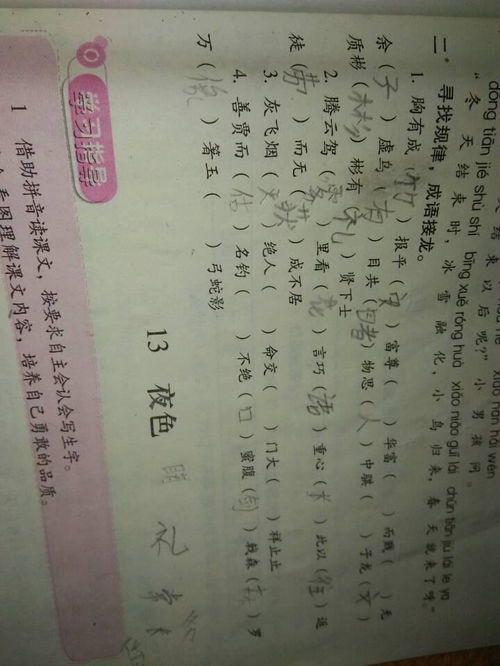 结 束 以后呢?" 小 男 孩 问。
dōng tiān jié shù shí bīng xuě róng huà xiǎo niǎo guī lái chūn tiān jiù lái le ya
"冬 天 结 束 时, 冰 雪 融 化, 小 鸟 归 来, 春 天 就 来 了 呀。"
二、寻找规律,成语接龙。
1. 胸有成(竹)报平(安)富尊( )华富( )而贱( )无
余(子)虚乌(有)目共(睹)物思(人)中骐( )于龙(文)
质彬(彬)彬有(礼)贤下士
2. 腾云驾(雾)里看(花)言巧(语)重心(长)此以(往)返
徒(劳)而无(获)成不居
3. 灰飞烟(灭)绝人( )命交( )门大( )祥止止
4. 善贾而(估)名钓( )不绝(口)蜜腹(剑)戟森(森)罗
万( )箸玉( )弓蛇影
13 夜色
学习指导
1 借助拼音读课文,按要求自主会认会写生字。
看图理解课文内容,培养自己勇敢的品质。